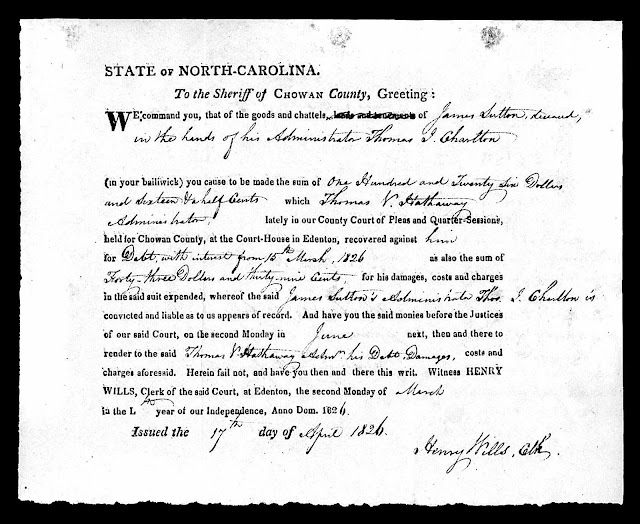 STATE OF NORTH-CAROLINA.
To the Sheriff of CHOWAN County, Greeting:
WE command you, that of the goods and chattels, lands and tenements of James Sutton, deceased,
in the hands of his Administrator Thomas J. Charlton
(in your bailiwick) you cause to be made the sum of One Hundred and Twenty Six Dollars
and Sixteen & half Cents which Thomas V. Hathaway
Administrator, lately in our County Court of Pleas and Quarter-Sessions,
held for Chowan County, at the Court-House in Edenton, recovered against him
for Debt, with interest from 15th March, 1826 as also the sum of
Forty-three Dollars and thirty-nine Cents, for his damages, costs and charges
in the said suit expended, whereof the said James Sutton's Administrate Thos. J. Charlton is
convicted and liable as to us appears of record. And have you the said monies before the Justices
of our said Court, on the second Monday in June next, then and there to
render to the said Thomas V. Hathaway Admr. his Debt, Damages, costs and
charges aforesaid. Herein fail not, and have you then and there this writ. Witness HENRY
WILLS, Clerk of the said Court, at Edenton, the second Monday of March
in the L year of our Independence, Anno Dom. 1826.
Issued the 17th day of April 1826.
Henry Wills, Clk